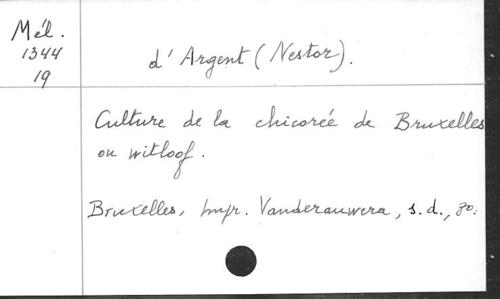 Mél.
1344
19
d'Argent (Nestor).
Culture de la chicorée de Bruxelles
ou witloof.
Bruxelles, Impr. Vanderauwera, s.d., 8o.